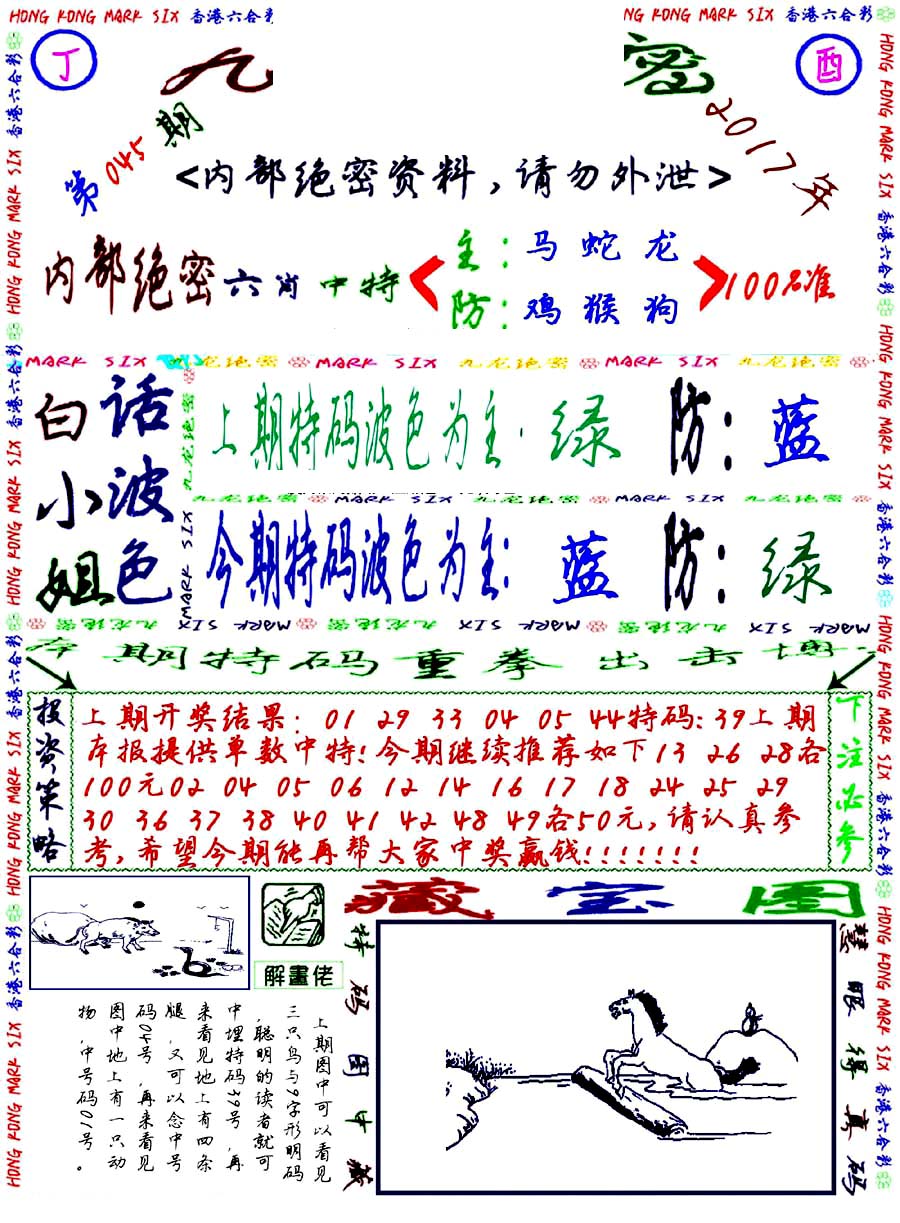 HONG KONG MARK SIX 香港六合彩
NG KONG MARK SIX 香港六合彩
丁
九
密
酉
第045期
2017年
<内部绝密资料,请勿外泄>
内部绝密六肖中特
主:马蛇龙
防:鸡猴狗
100%准
MARK SIX 九龙绝密 MARK SIX 九龙绝密 MARK SIX 九龙绝密
白小姐
话波色
上期特码波色为主:绿 防:蓝
九龙绝密 MARK SIX 九龙绝密 MARK SIX 九龙绝密
今期特码波色为主:蓝 防:绿
九龙绝密 MARK SIX 九龙绝密 MARK SIX 九龙绝密 MARK SIX
本期特码重拳出击博
投资策略
上期开奖结果: 01 29 33 04 05 44特码:39上期
本报提供单数中特!今期继续推荐如下13 26 28各
100元02 04 05 06 12 14 16 17 18 24 25 29
30 36 37 38 40 41 42 48 49各50元,请认真参
考,希望今期能再帮大家中奖赢钱!!!!!!!
下注必参
藏宝图
解畫佬
上期图中可以看见
三只鸟与9字形明码
,聪明的读者就可
中埋特码39号,再
来看见地上有四条
腿,又可以念中号
码04号,再来看见
图中地上有一只动
物,中号码01号。
特码图中藏
慧眼得真码
HONG KONG MARK SIX 香港六合彩
HONG KONG MARK SIX 香港六合彩